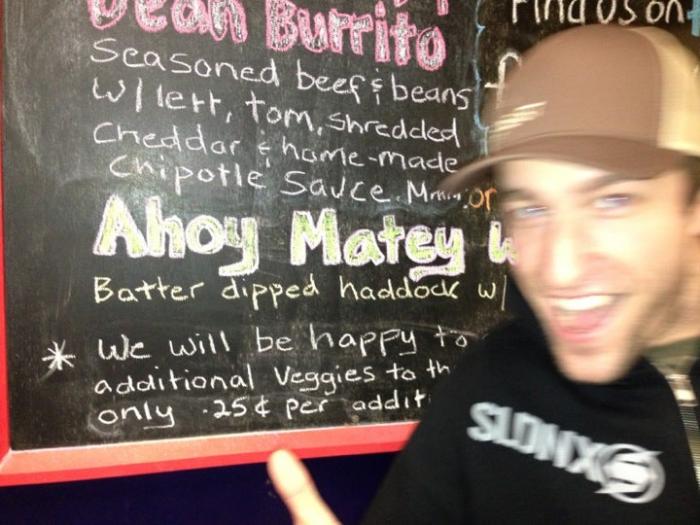 Bean Burrito
Find us on
Seasoned beef & beans
w/ lett, tom, shredded
Cheddar & home-made
Chipotle Sauce. Mmm. or
Ahoy Matey
Batter dipped haddock w/
* We will be happy to
additional Veggies to
only .25¢ per
SLDNX S